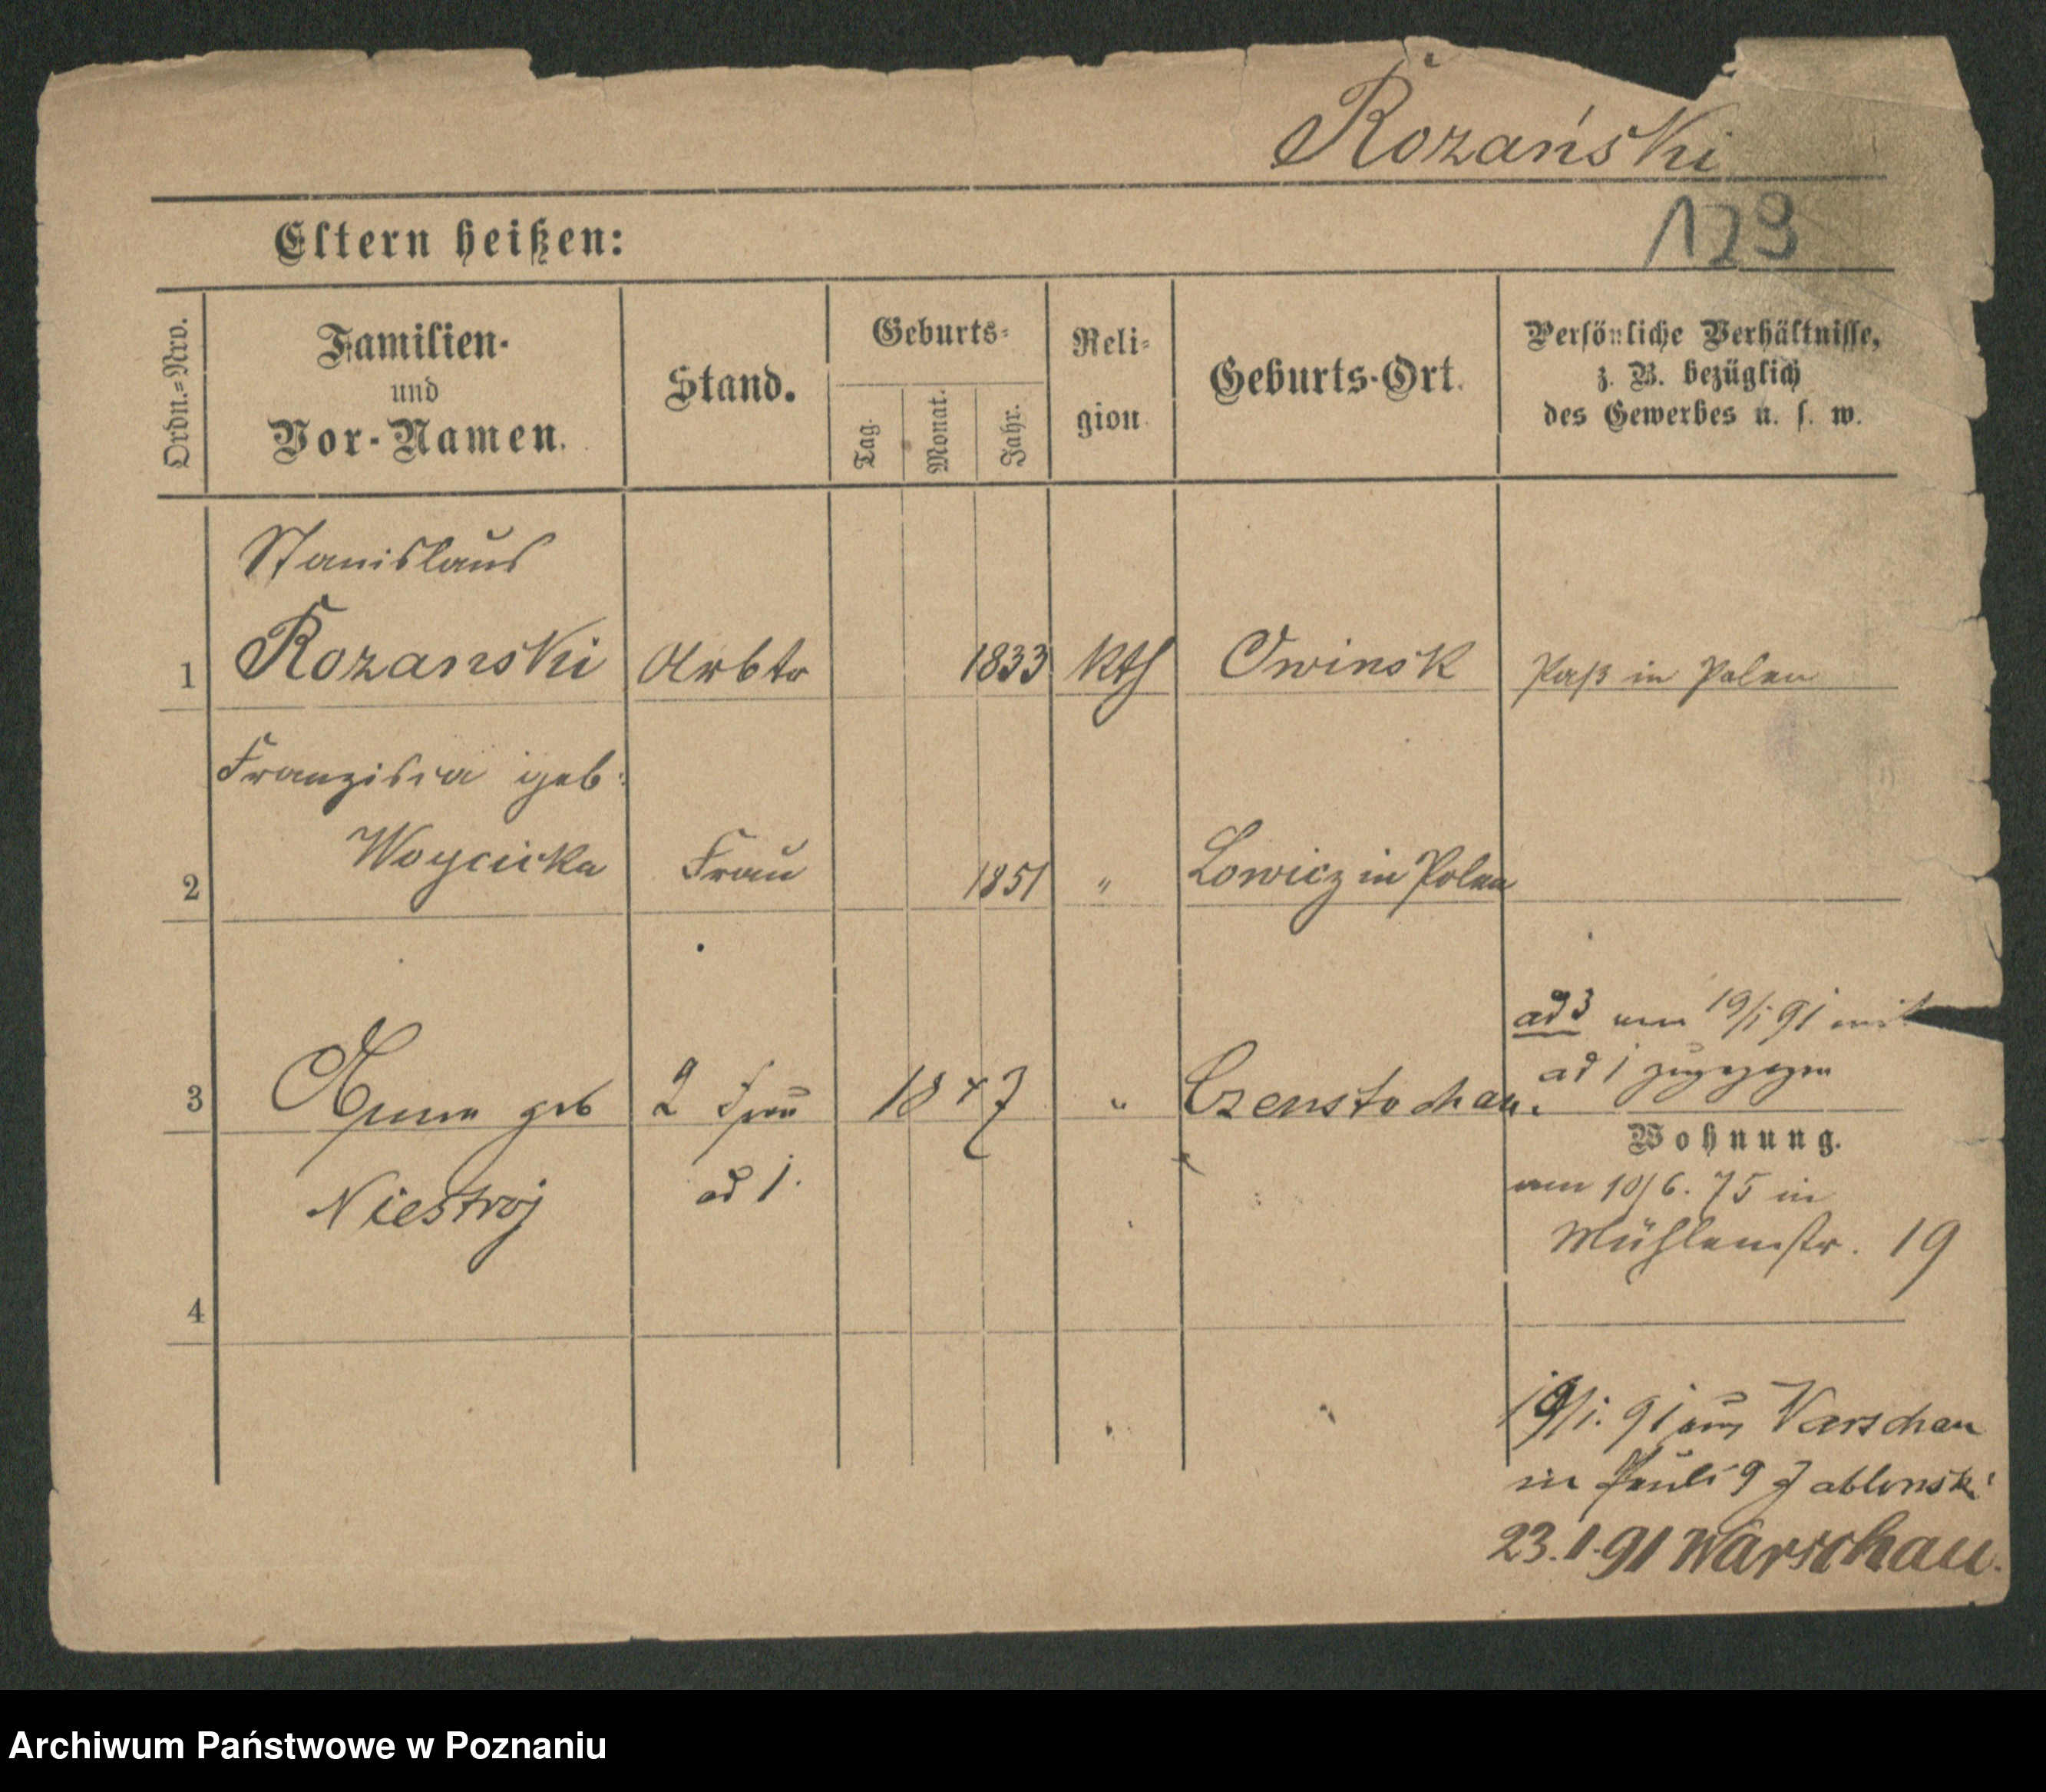 Rozański
129
Eltern heißen:
Ordn.=Nro.
Familien-
und
Vor-Namen.
Stand.
Geburts-
Tag.
Monat.
Jahr.
Reli-
gion
Geburts-Ort.
Persönliche Verhältnisse,
z. B. bezüglich
des Gewerbes u. s. w.
Stanislaus
1 Rozanski Arbtr 1833 kth Owinsk Paß in Polen
Franziska geb.
2 Woycicka Frau 1851 " Lowicz in Polen
ad 3 am 19/1 91 mit
ad 1 zugezogen
3 Anna geb 2 Frau 1847 " Czenstochau.
Wohnung.
Niestroj ad 1. am 10/6. 75 in
Mühlenstr. 19
4
19/1. 91 aus Warschau
in Pauli 9 Jablonski
23.1.91 Warschau.
Archiwum Państwowe w Poznaniu